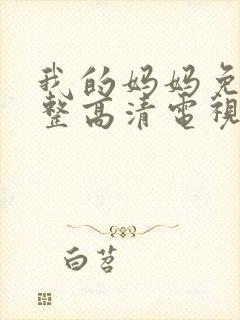 我的妈妈免
整高清電視
白茗